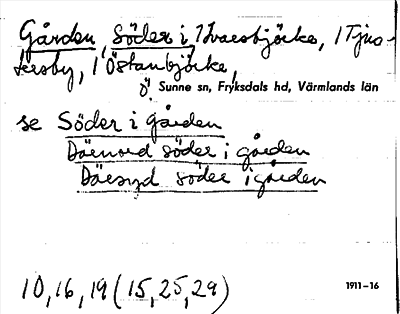 Gården, Söder i, 1 Ivarsbjörke, 1 Tjus-
kersby, 1 Östanbjörke,
Ö Sunne sn, Fryksdals hd, Värmlands län
se Söder i gården
Därnord söder i gården
Däresyd söder i gården
10, 16, 19 (15, 25, 29)
1911-16